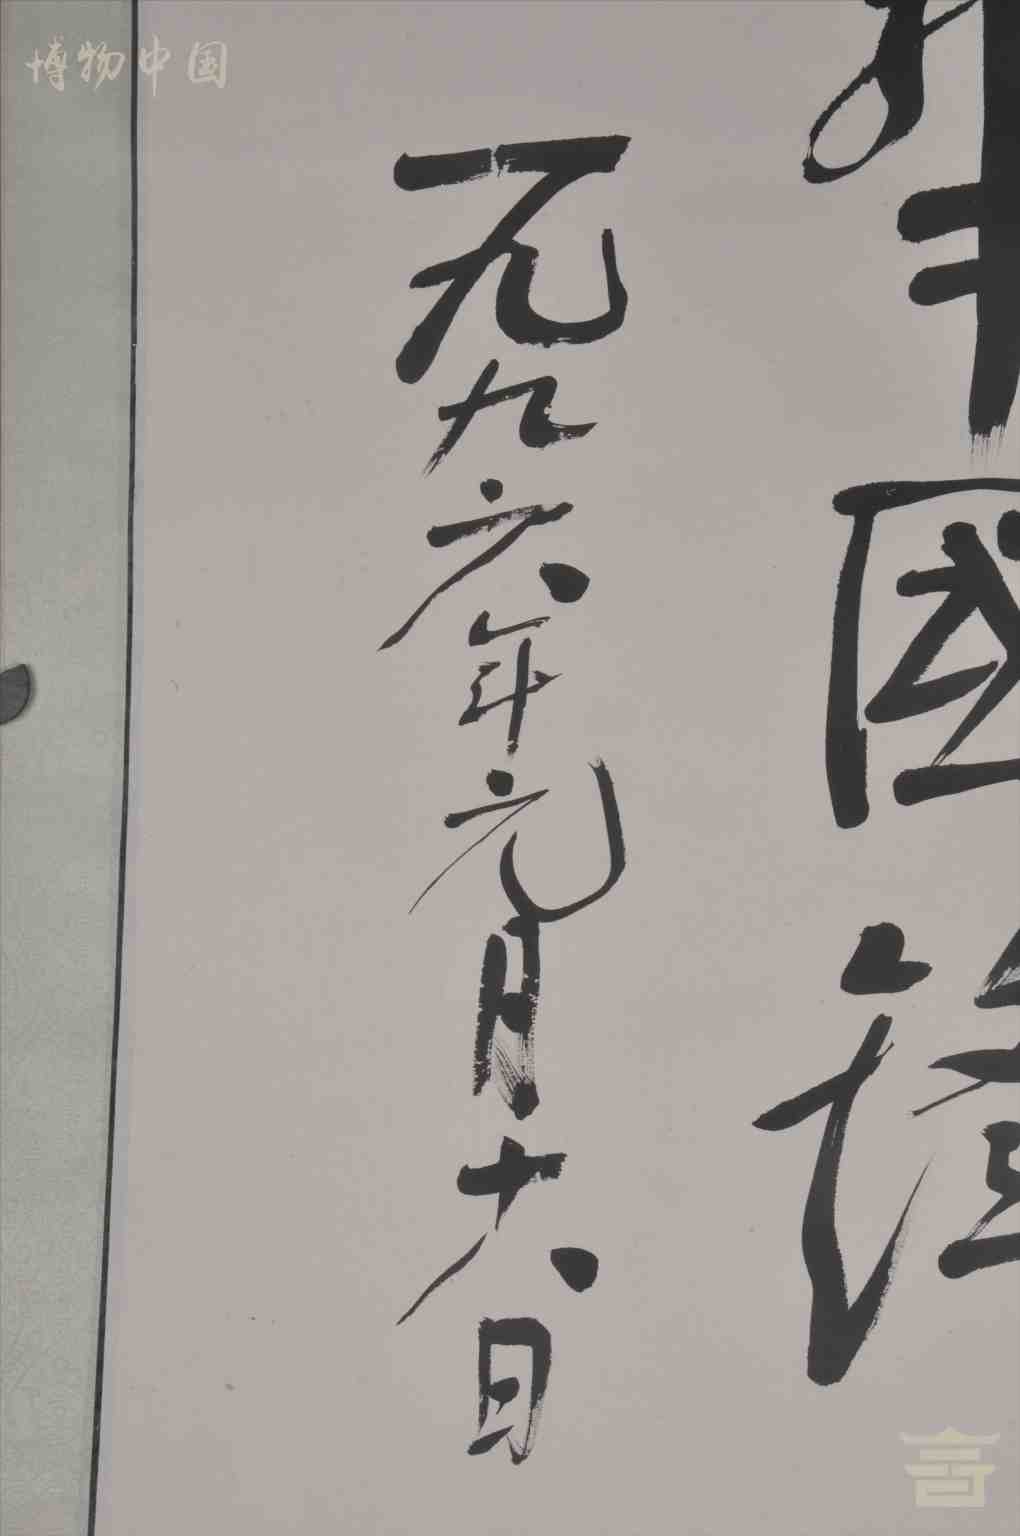 博物中国
國
一九九六年元月十八日